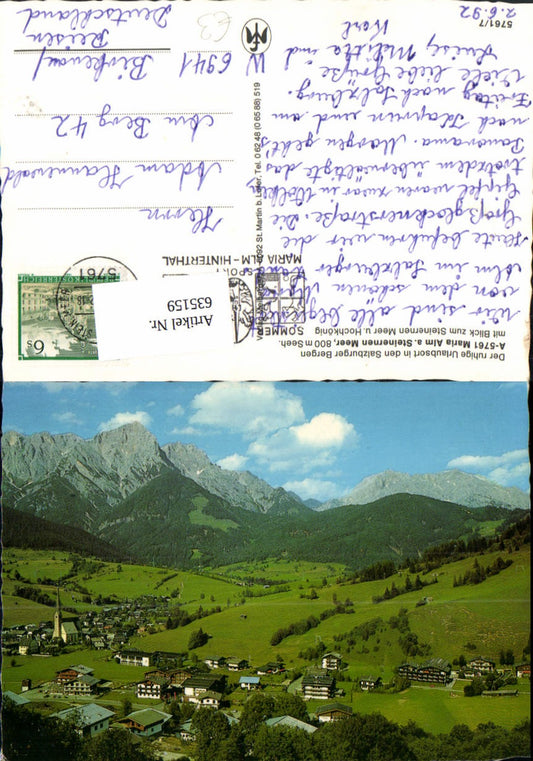 Der ruhige Urlaubsort in den Salzburger Bergen
A-5761 Maria Alm a. Steinernen Meer, 800 m Seeh.
mit Blick zum Steinernen Meer u. Hochkönig
Wir sind alle begeistert
von dem schönen
Alm im Salzburger Land.
Heute befuhren wir die
Großglocknerstraße. Die
Gipfel waren zwar in Wolken
trotzdem überwältigte das
Panorama. Morgen geht's
nach Kaprun und am
Freitag nach Salzburg.
Viele liebe Grüße
und
Karl
5761/7
2.6.92
5092 St. Martin b. Lofer, Tel. 0 62 48 (0 65 88) 519
SOMMER
SPORT
MARIA ALM - HINTERTHAL
5761
6 S
Artikel Nr.
635159
Herrn
Adam Hannewald
Am Berg 42
W 6941
Birkenau/
Reisen
Deutschland
€3